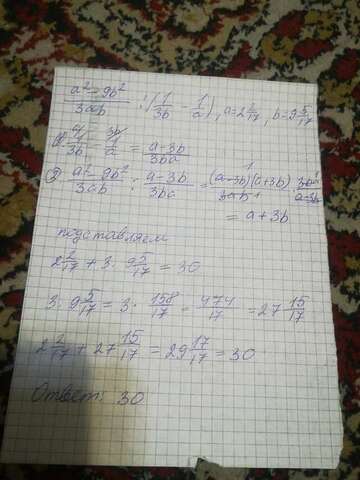 (a² − 9b²)/3ab : (1/3b − 1/a), a = 2 2/17, b = 9 5/17
① 1/3b − 1/a = (a−3b)/3ba
② (a² − 9b²)/3ab : (a−3b)/3ba = (a−3b)(a+3b)/3ab · 3ba/(a−3b)
= a + 3b
подставляем
2 2/17 + 3 · 9 5/17 = 30
3 · 9 5/17 = 3 · 158/17 = 474/17 = 27 15/17
2 2/17 + 27 15/17 = 29 17/17 = 30
Ответ: 30